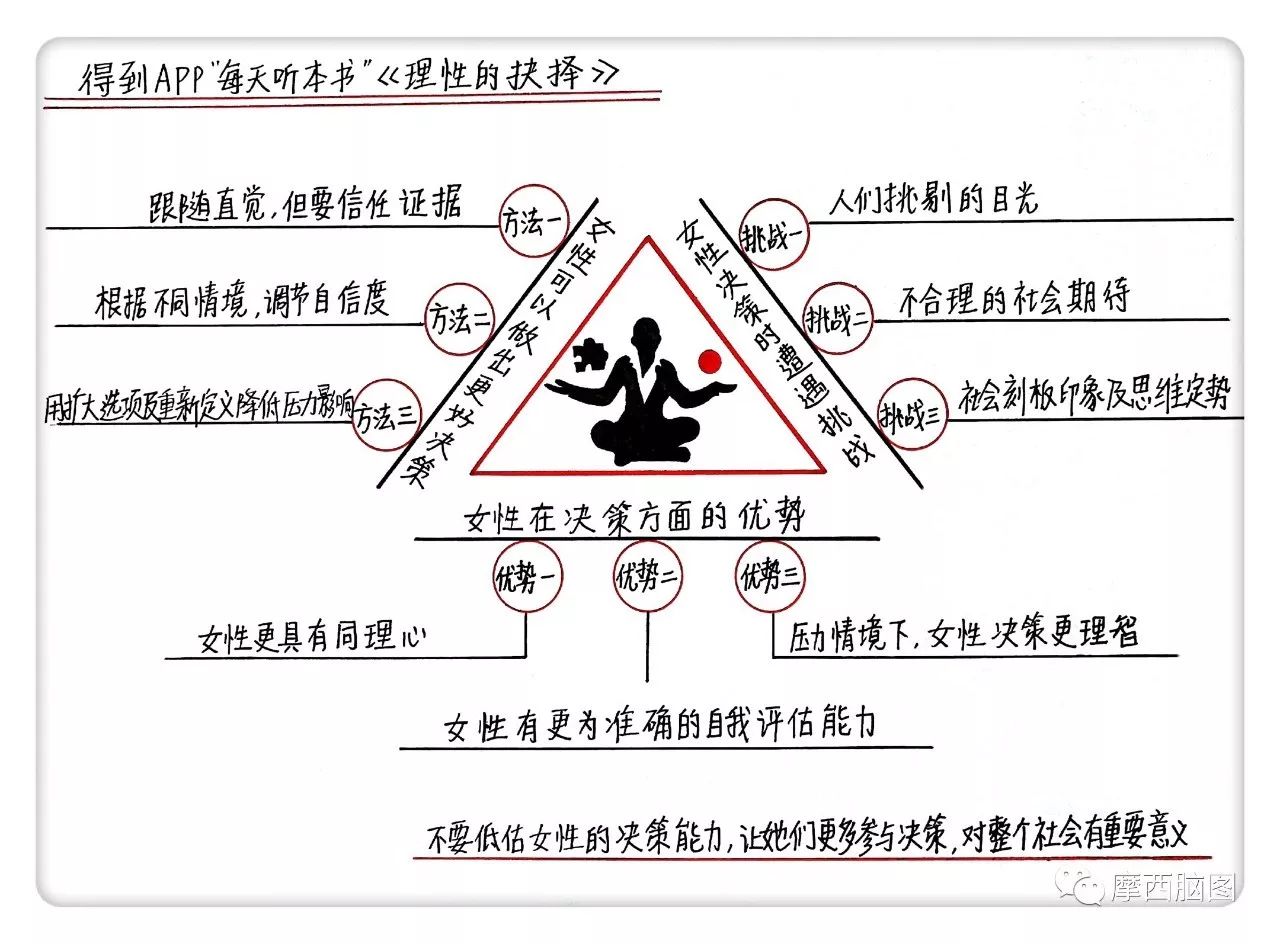 得到APP“每天听本书”《理性的抉择》
女性可以做出更好决策
方法一
跟随直觉，但要信任证据
方法二
根据不同情境，调节自信度
方法三
用扩大选项及重新定义降低压力影响
女性决策时遭遇挑战
挑战一
人们挑剔的目光
挑战二
不合理的社会期待
挑战三
社会刻板印象及思维定势
女性在决策方面的优势
优势一
女性更具有同理心
优势二
女性有更为准确的自我评估能力
优势三
压力情境下，女性决策更理智
不要低估女性的决策能力，让她们更多参与决策，对整个社会有重要意义
摩西脑图